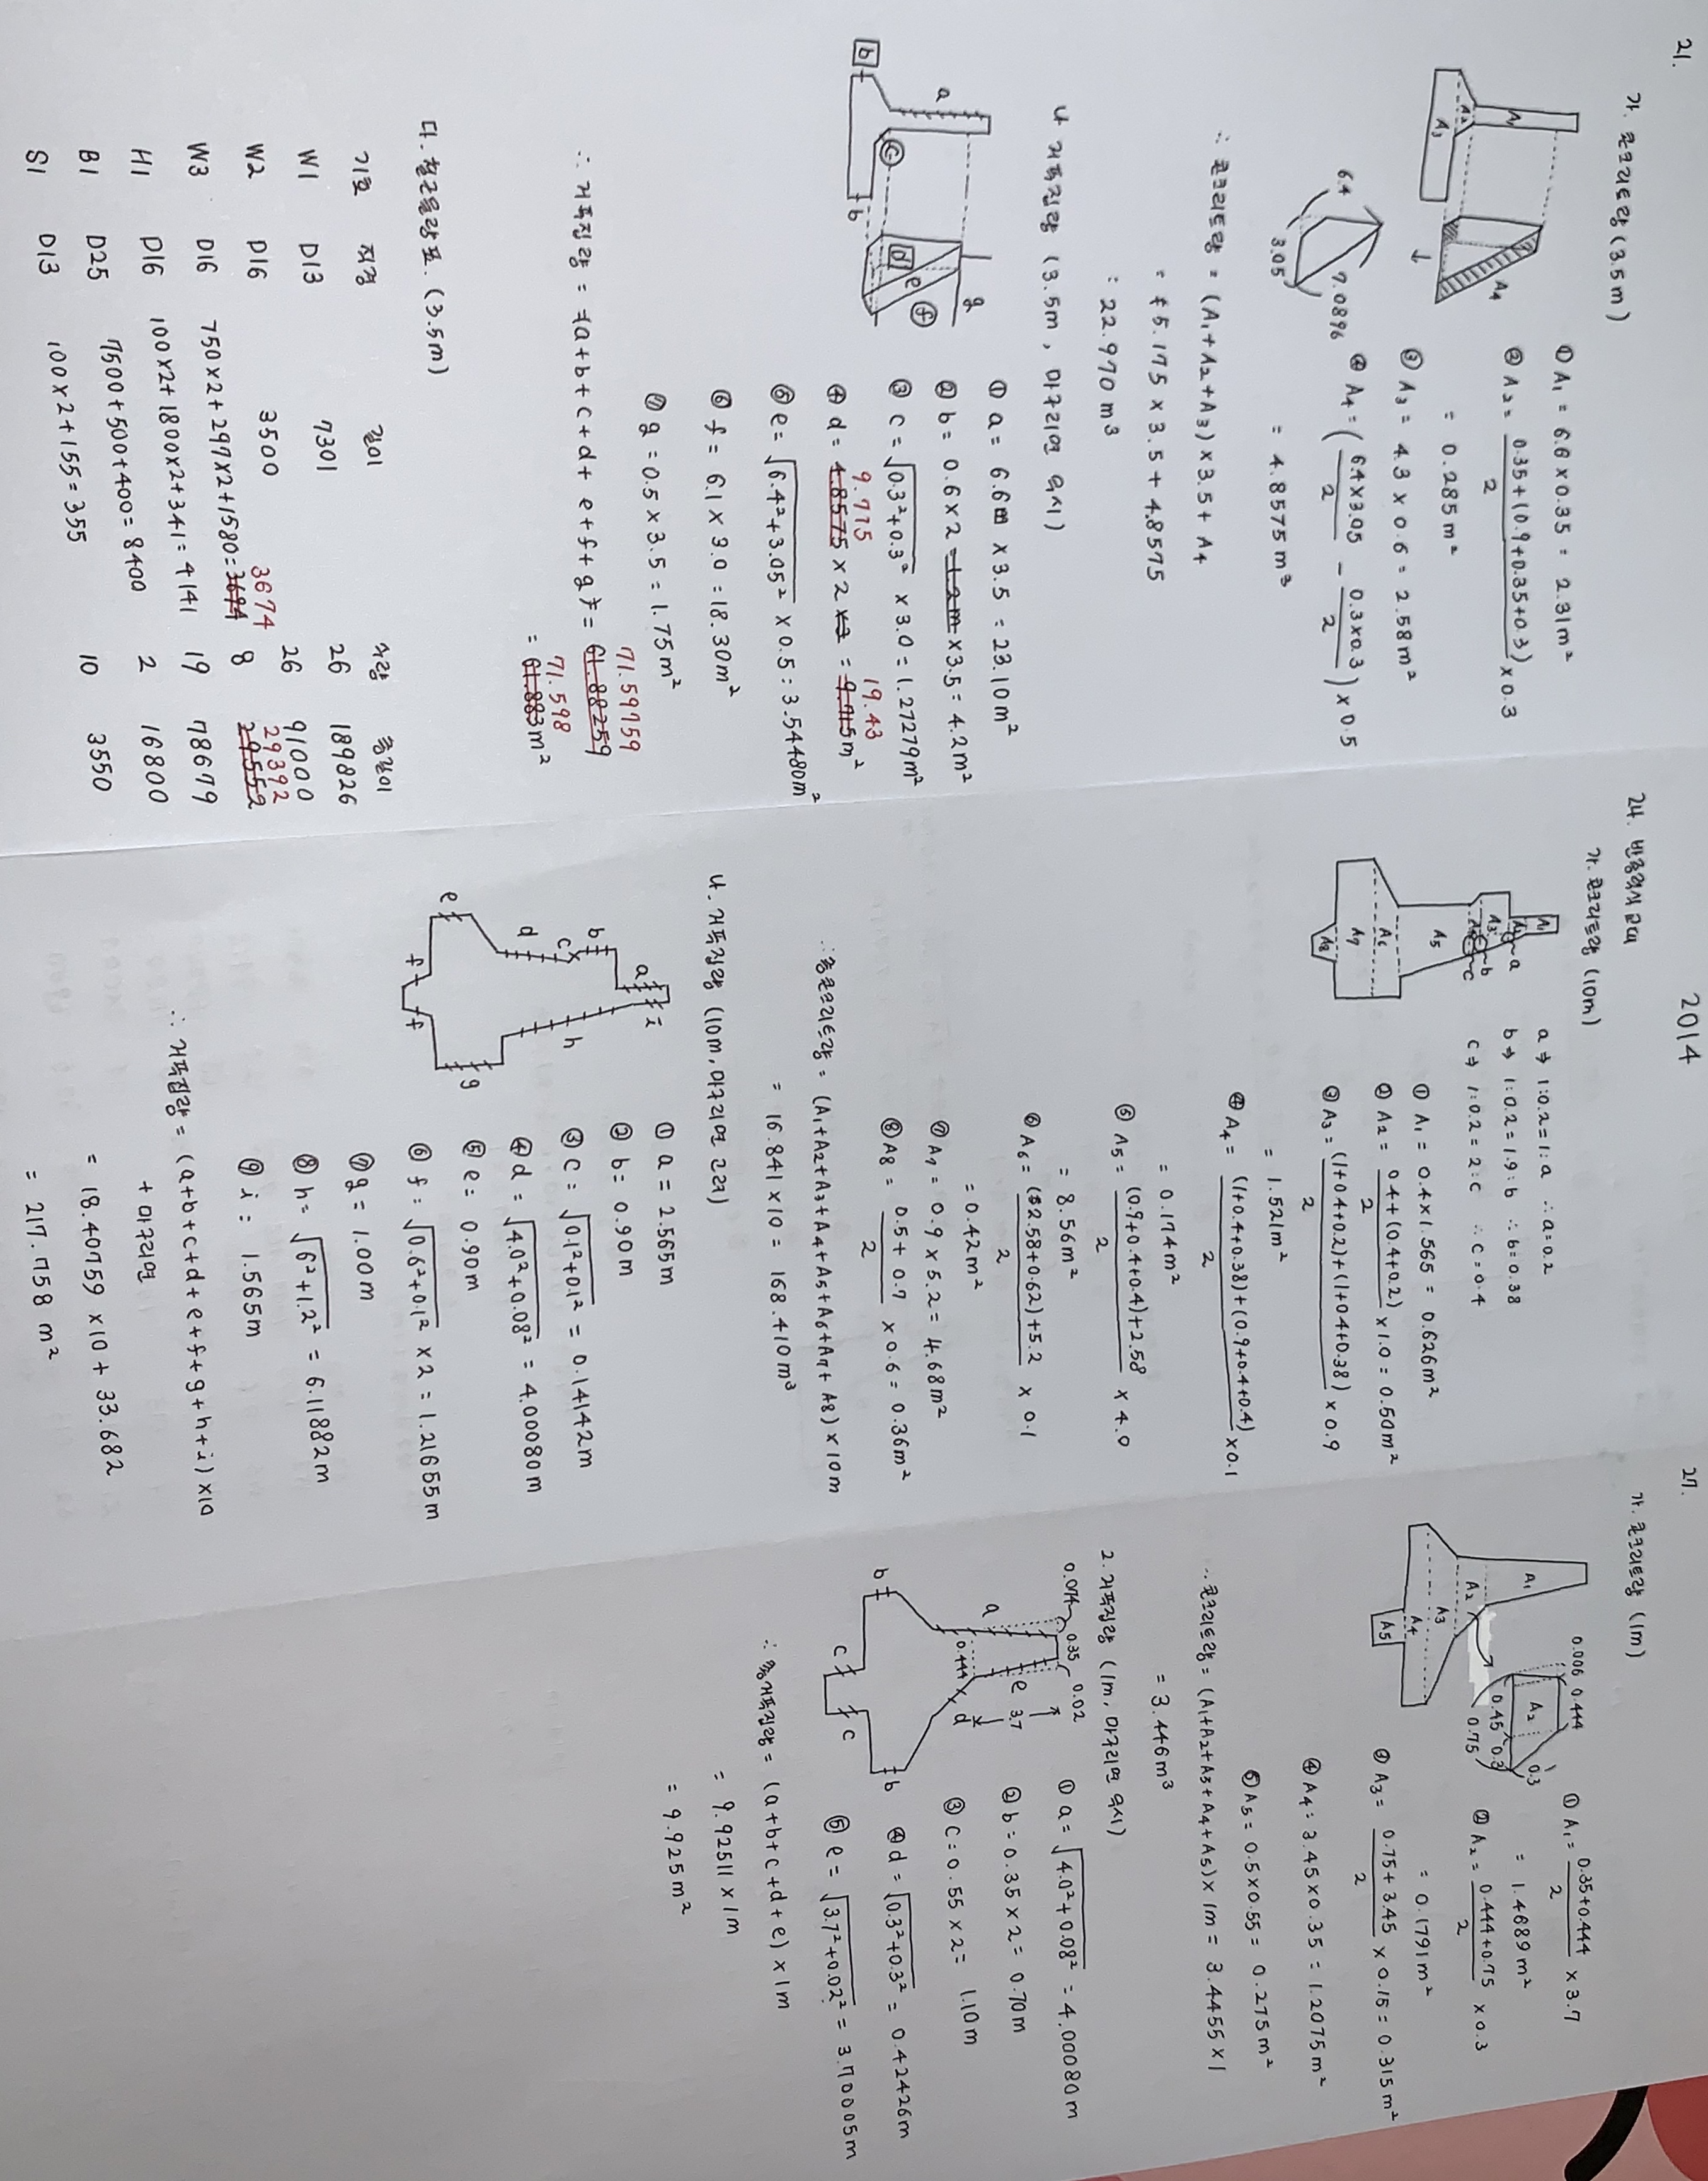 21.
가. 콘크리트량 (3.5m)
A1
A2
A3
A4
6.4
7.0896
3.05
① A1 = 6.6 × 0.35 = 2.31m²
② A2 = (0.35+(0.9+0.35+0.3))/2 × 0.3
= 0.285m²
③ A3 = 4.3 × 0.6 = 2.58m²
④ A4 = (6.4×3.05/2 - 0.3×0.3/2) × 0.5
= 4.8575m³
∴ 콘크리트량 = (A1+A2+A3) × 3.5 + A4
= 5.175 × 3.5 + 4.8575
= 22.970m³
나. 거푸집량 (3.5m, 마구리면 무시)
a
b
b
c
d
e
f
g
① a = 6.6m × 3.5 = 23.10m²
② b = 0.6×2 =1.2m ×3.5 = 4.2m²
③ c = √0.3²+0.3² × 3.0 = 1.27279m²
9.715 19.43
④ d = 4.8575 × 2 ×2 = 9.715m²
⑤ e = √6.4²+3.05² × 0.5 = 3.54480m²
⑥ f = 6.1 × 3.0 = 18.30m²
⑦ g = 0.5 × 3.5 = 1.75m²
71.59759
∴ 거푸집량 = (a+b+c+d+e+f+g) = 61.88259
71.598
= 61.883m²
다. 철근물량표. (3.5m)
기호 직경 길이 수량 총길이
W1 D13 7301 26 189826
W2 D16 3500 26 91000
3674 29392
W3 D16 750×2+297×2+1580=3694 8 29552
H1 D16 100×2+1800×2+341=4141 19 78679
B1 D25 7500+500+400=8400 2 16800
S1 D13 100×2+155=355 10 3550
2014
24. 반중력식 교대
가. 콘크리트량 (10m)
A1
A2
A3
A4
A5
A6
A7
A8
a
b
c
a ⇒ 1:0.2=1:a ∴a=0.2
b ⇒ 1:0.2=1.9:b ∴b=0.38
c ⇒ 1:0.2=2:c ∴c=0.4
① A1 = 0.4×1.565 = 0.626m²
② A2 = (0.4+(0.4+0.2))/2 × 1.0 = 0.50m²
③ A3 = ((1+0.4+0.2)+(1+0.4+0.38))/2 × 0.9
= 1.521m²
④ A4 = ((1+0.4+0.38)+(0.9+0.4+0.4))/2 × 0.1
= 0.174m²
⑤ A5 = ((0.9+0.4+0.4)+2.58)/2 × 4.0
= 8.56m²
⑥ A6 = ((2.58+0.62)+5.2)/2 × 0.1
= 0.42m²
⑦ A7 = 0.9 × 5.2 = 4.68m²
⑧ A8 = (0.5+0.7)/2 × 0.6 = 0.36m²
∴총콘크리트량 = (A1+A2+A3+A4+A5+A6+A7+A8)×10m
= 16.841×10 = 168.410m³
나. 거푸집량 (10m, 마구리면 고려)
a
b
c
d
e
f
f
g
h
i
① a = 2.565m
② b = 0.90m
③ c = √0.1²+0.1² = 0.14142m
④ d = √4.0²+0.08² = 4.00080m
⑤ e = 0.90m
⑥ f = √0.6²+0.1² × 2 = 1.21655m
⑦ g = 1.00m
⑧ h = √6²+1.2² = 6.11882m
⑨ i = 1.565m
∴ 거푸집량 = (a+b+c+d+e+f+g+h+i)×10
+마구리면
= 18.40759 ×10 + 33.682
= 217.758 m²
27.
가. 콘크리트량 (1m)
A1
A2
A3
A4
A5
0.006 0.444
A2
0.45
0.3
0.3
0.75
① A1 = (0.35+0.444)/2 × 3.7
= 1.4689m²
② A2 = (0.444+0.75)/2 × 0.3
= 0.1791m²
③ A3 = (0.75+3.45)/2 × 0.15 = 0.315m²
④ A4 = 3.45×0.35 = 1.2075m²
⑤ A5 = 0.5×0.55 = 0.275m²
∴콘크리트량 = (A1+A2+A3+A4+A5)×1m = 3.4455×1
= 3.446m³
2. 거푸집량 (1m, 마구리면 무시)
0.074
0.35
0.02
0.444
3.7
a
b
b
c
c
d
e
① a = √4.0²+0.08² = 4.00080m
② b = 0.35×2 = 0.70m
③ c = 0.55×2 = 1.10m
④ d = √0.3²+0.3² = 0.42426m
⑤ e = √3.7²+0.02² = 3.70005m
∴ 총거푸집량 = (a+b+c+d+e)×1m
= 9.92511 × 1m
= 9.925m²